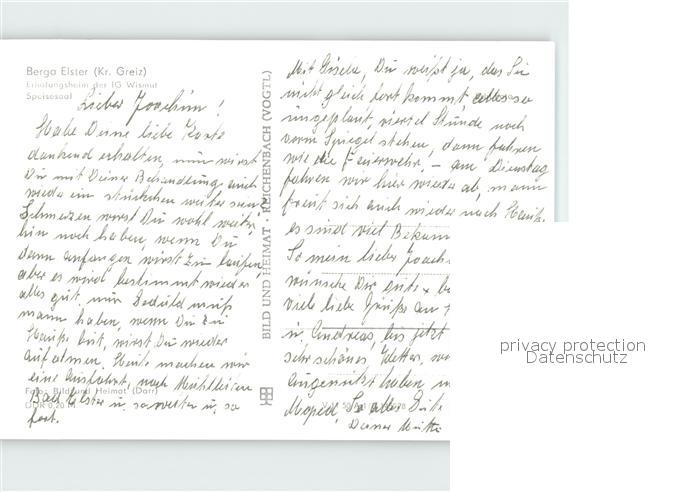 Berga Elster (Kr. Greiz)
Erholungsheim der IG Wismut
Speisesaal
Lieber Joachim!
Habe Deine liebe Karte
dankend erhalten, nun wirst
Du mit Deiner Behandlung auch
wieder ein stückchen weiter sein,
Schmerzen wirst Du wohl weiter
hin noch haben, wenn Du
dann anfangen wirst zu laufen,
aber es wird bestimmt wieder
alles gut, nur Geduld muß
mann haben, wenn Du zu
Hauße bist, wirst Du wieder
aufatmen. Heute machen wir
eine Ausfahrt, nach
Bad Elster u. so weiter u. so
fort.
Foto: Bild und Heimat (Darr)
BILD UND HEIMAT · REICHENBACH (VOGTL)
Mit Gisela, Du weißt ja, das Sie
nicht gleich fort kommt, alles so
eingeplant, viertel Stunde noch
vorm Spiegel stehen, dann fahren
wie die Feuerwehr. – am Dienstag
fahren wir hier wieder ab, mann
freut sich auch wieder nach Hauße
es sind viel
So mein lieber
wünsche Dir gute
viele liebe Grüße an
u. Andreas, bis jetzt
sehr schönes Wetter,
ausgenützt haben,
Moped, So alles Gute
Deine
privacy protection
Datenschutz